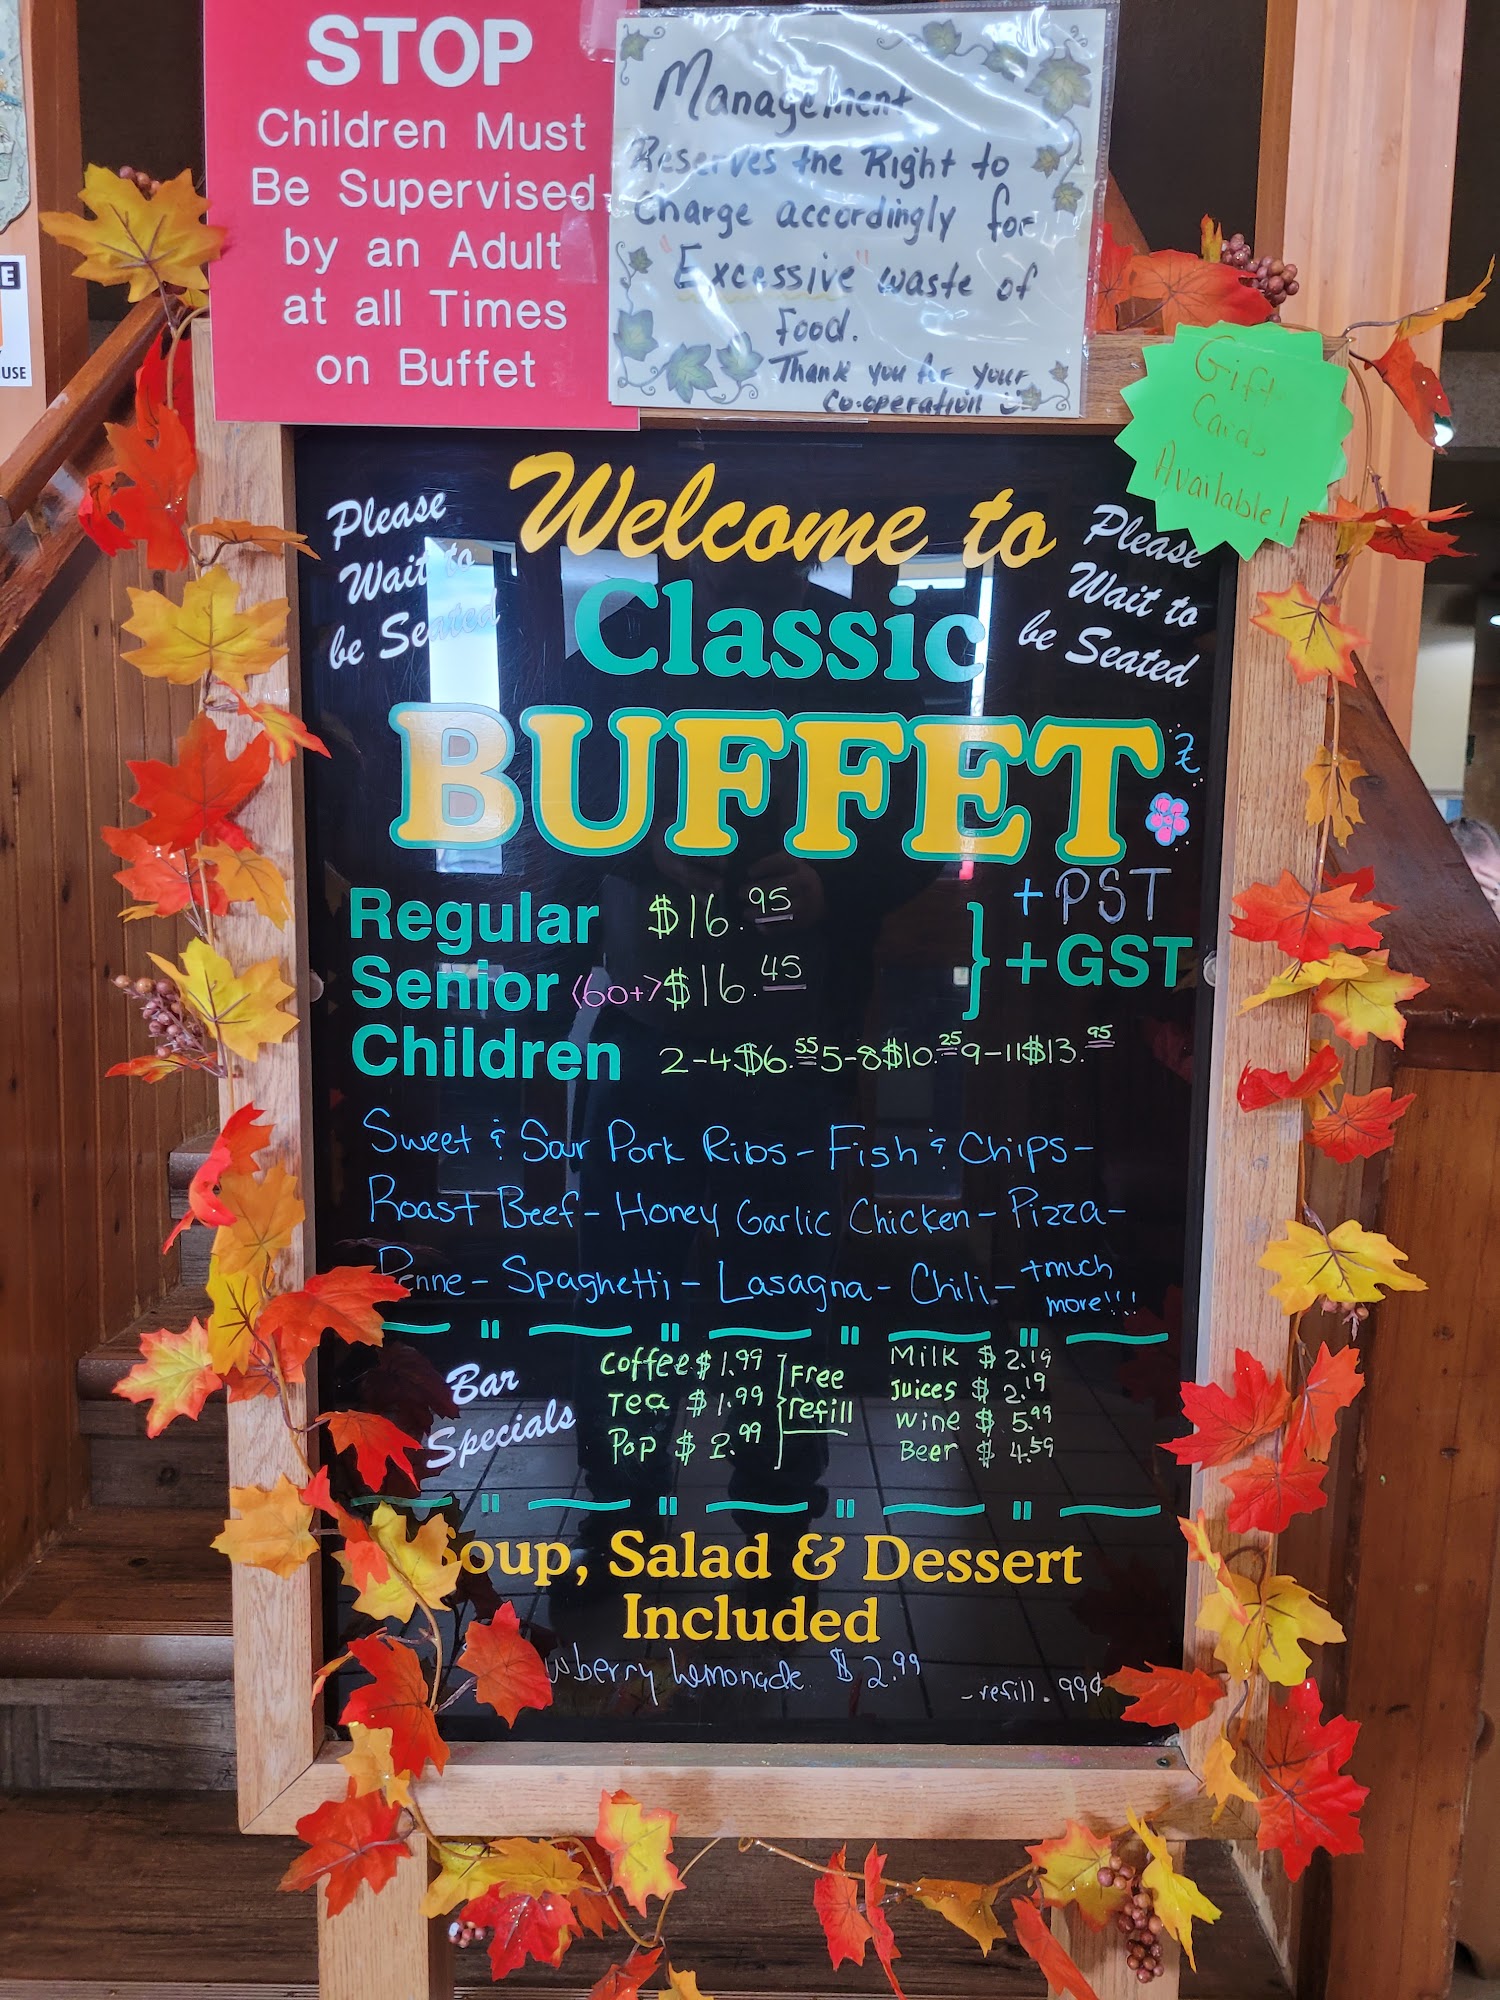 STOP
Children Must
Be Supervised
by an Adult
at all Times
on Buffet
Management
Reserves the Right to
Charge accordingly for
"Excessive" waste of
Food.
Thank you for your
Co-operation
Gift
Cards
Available!
E
USE
Please
Wait to
be Seated
Welcome to
Please
Wait to
be Seated
Classic
BUFFET
+ PST
Regular $16.95
Senior (60+) $16.45 } +GST
Children 2-4 $6.55 5-8 $10.25 9-11 $13.95
Sweet & Sour Pork Ribs - Fish & Chips -
Roast Beef - Honey Garlic Chicken - Pizza -
Penne - Spaghetti - Lasagna - Chili - + much
more!!!
Bar
Specials
Coffee $1.99
Tea $1.99
Pop $2.99
Free
refill
Milk $2.19
Juices $2.19
Wine $5.99
Beer $4.59
Soup, Salad & Dessert
Included
wberry Lemonade $2.99
- refill .99¢